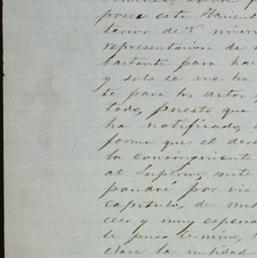 posee esta Hacienda
terior de
representacion de
bastante para hac
y solo se me ha
te para los autos y
todo, puesto que
ha notificado, s
forma que el dere
la consiguiente
al Superior, inte
pondré por via
capitulo, de nul
ces y muy especia
le pena termino,
clare la nulidad